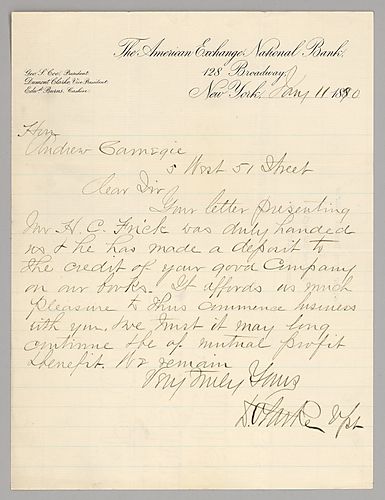 The American Exchange National Bank.
128 Broadway,
Geo. S. Coe, President.
Dumont Clarke, Vice President.
Edwd. Burns, Cashier.
New York, Jany 11 1890
Hon
Andrew Carnegie
5 West 51 Street
Dear Sir
Your letter presenting
Mr H. C. Frick was duly handed
us & he has made a deposit to
the credit of your good Company
on our books. It affords us much
pleasure to thus commence business
with you, & we trust it may long
continue & be of mutual profit
& benefit. We remain
Very Truly Yours
D. Clarke VPt